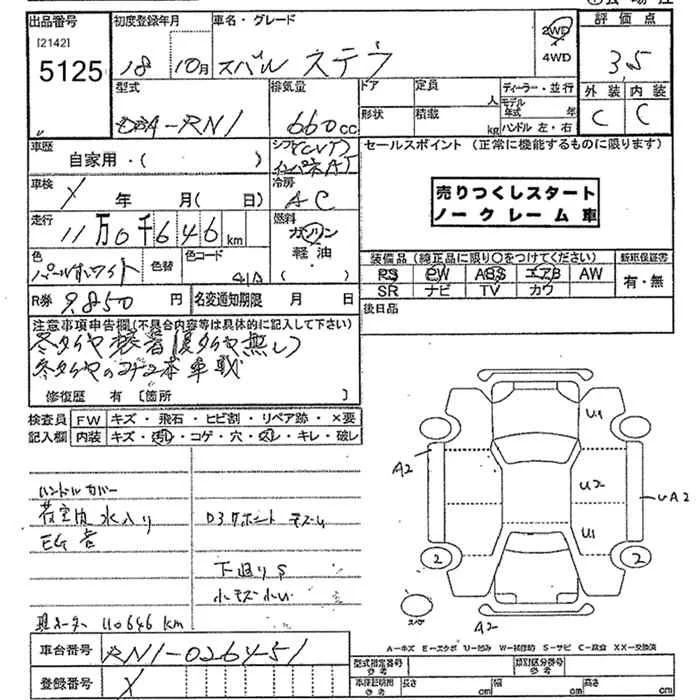 出品番号
[2142]
5125
初度登録年月
18 10月
車名・グレード
スバル ステラ
2WD
4WD
評価点
3.5
外装 内装
C C
型式
DBA-RN1
排気量
660cc
ドア
形状
定員
人
積載
kg
ディーラー・並行
モデル年式 年
ハンドル 左・右
車歴
自家用・( )
シフト(CVT)
インパネAT
セールスポイント (正常に機能するものに限ります)
売りつくしスタート
ノークレーム車
車検
年 月( 日)
冷房
AC
走行
11万0千646km
燃料
ガソリン
軽油・
( )
色
パールホワイト
色替
カラーコード
41A
装備品(純正品に限り○をつけてください)
PS PW ABS エアB AW
SR ナビ TV カワ
新車保証書
有・無
R券 9.850円
名変通知期限 月 日
後日品
注意事項申告欄(不具合内容等は具体的に記入して下さい)
冬タイヤ装着(夏タイヤ無し)
冬タイヤのコ
本車載
修復歴 有 [箇所 ]
検査員記入欄
FW キズ・飛石・ヒビ割・リペア跡・×要
内装 キズ・汚れ・コゲ・穴・スレ・キレ・破レ
ハンドルカバー
荷室内水入り
EG音
D3
下廻りS
小キズ小凹
現メーター 110646 km
U1
A2
U2
UA2
U1
2
2
スペア
A2
車台番号
RN1-026451
登録番号
A=キズ E=エクボ U=凹み W=補修跡 S=サビ C=腐食 XX=交換済
型式指定番号
参考
類別区分番号
参考
車検証期間
参考
長さ cm
幅 cm
高さ cm